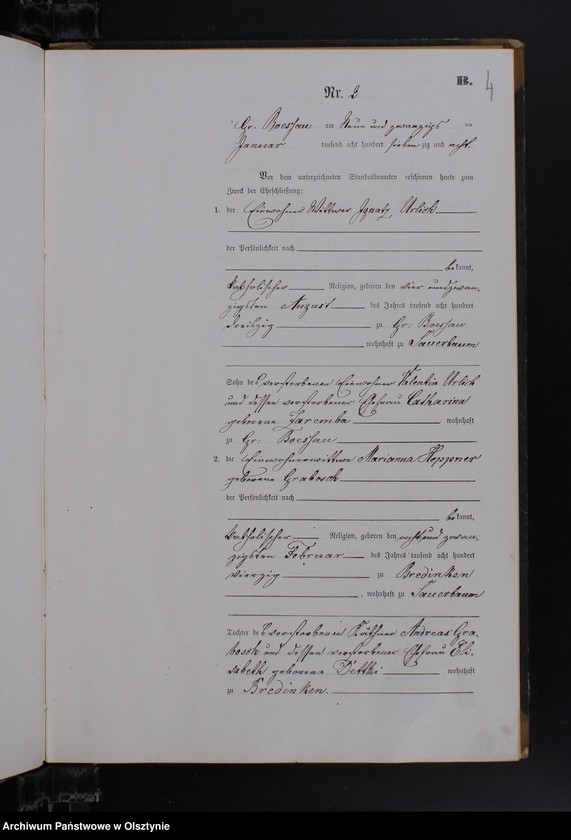 B.
4
Nr. 2
Gr. Boessau am Neun und zwanzigs ten
Januar tausend acht hundert sieben zig und acht.
Vor dem unterzeichneten Standesbeamten erschienen heute zum
Zweck der Eheschließung:
1. der Einwohner Wittwer Ignatz Urlich
der Persönlichkeit nach
bekannt,
katholischer Religion, geboren den vier und zwan-
zigsten August des Jahres tausend acht hundert
dreißzig zu Gr: Boessau
, wohnhaft zu Sauerbaum
Sohn des verstorbenen Einwohner Valentin Urlich
und dessen verstorbener Ehefrau Catharina
geborene Jaremba wohnhaft
zu Gr: Boessau
2. die Einwohnerwittwe Marianna Heppner
geborene Grabosch
der Persönlichkeit nach
bekannt,
katholischer Religion, geboren den acht und zwan-
zigsten Februar des Jahres tausend acht hundert
vierzig zu Bredinken
, wohnhaft zu Sauerbaum
Tochter des verstorbenen Käthner Andreas Gra-
bosch und dessen verstorbener Ehefrau Eli-
sabeth geborene Tettki wohnhaft
zu Bredinken.
Archiwum Państwowe w Olsztynie